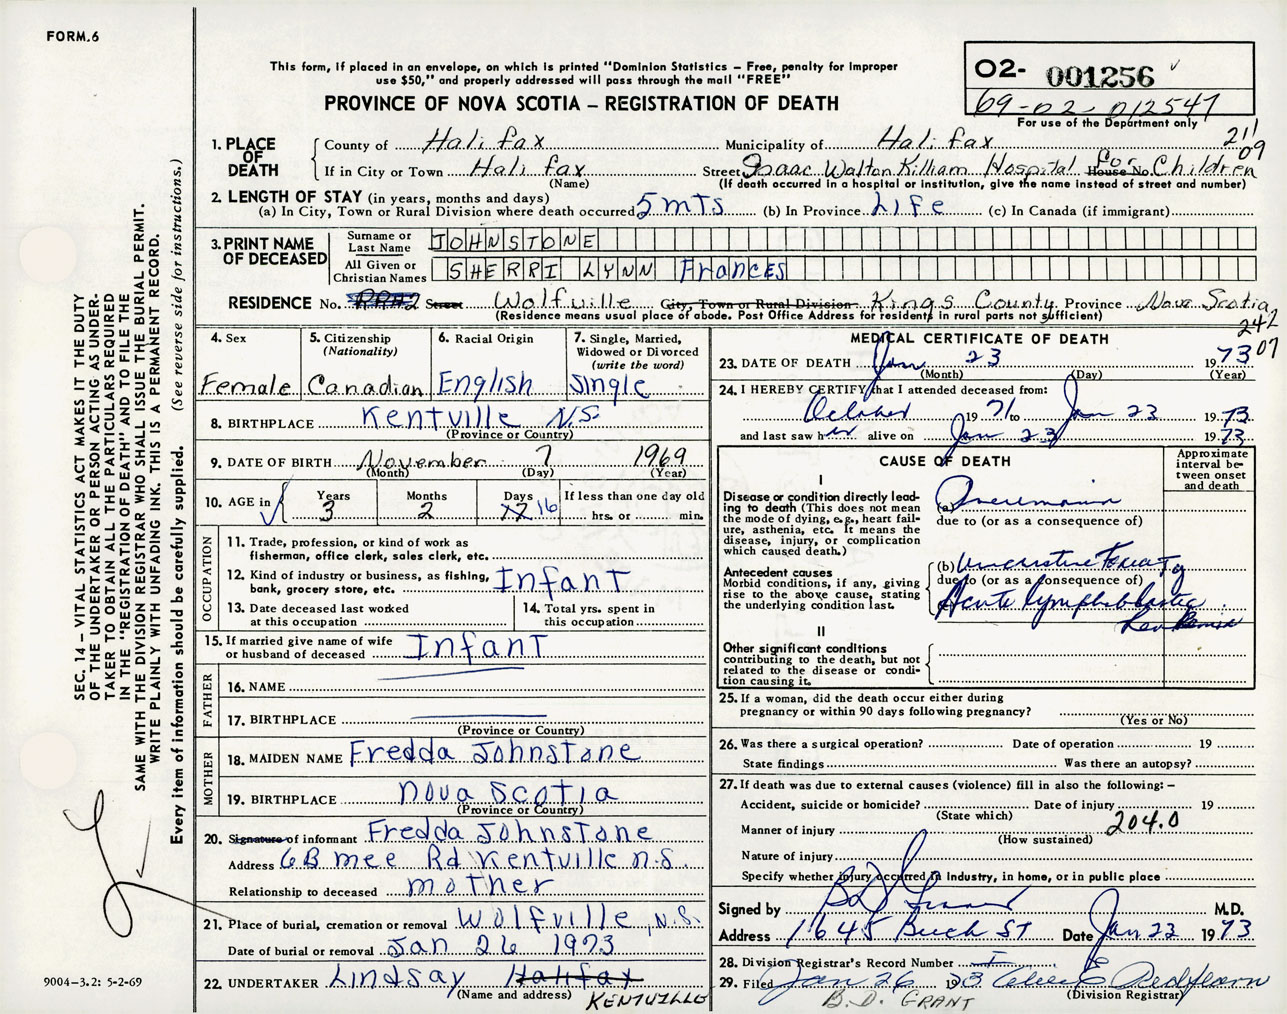 FORM.6
This form, if placed in an envelope, on which is printed "Dominion Statistics – Free, penalty for improper
use $50," and properly addressed will pass through the mail "FREE"
PROVINCE OF NOVA SCOTIA – REGISTRATION OF DEATH
02- 001256
69-02-012547
For use of the Department only
211
09
1. PLACE OF DEATH
County of Halifax Municipality of Halifax
If in City or Town Halifax Street Isaac Walton Killam Hospital for House No. Children
(Name) (If death occurred in a hospital or institution, give the name instead of street and number)
2. LENGTH OF STAY (in years, months and days)
(a) In City, Town or Rural Division where death occurred 5 mts (b) In Province Life (c) In Canada (if immigrant)
3. PRINT NAME OF DECEASED
Surname or Last Name JOHNSTONE
All Given or Christian Names SHERRI LYNN Frances
RESIDENCE No. RR#2 Street Wolfville City, Town or Rural Division Kings County Province Nova Scotia
(Residence means usual place of abode. Post Office Address for residents in rural parts not sufficient)
242
07
4. Sex Female
5. Citizenship (Nationality) Canadian
6. Racial Origin English
7. Single, Married, Widowed or Divorced (write the word) Single
8. BIRTHPLACE Kentville N.S.
(Province or Country)
9. DATE OF BIRTH November 7 1969
(Month) (Day) (Year)
10. AGE in Years 3 Months 2 Days 16 If less than one day old hrs. or min.
OCCUPATION
11. Trade, profession, or kind of work as
fisherman, office clerk, sales clerk, etc.
12. Kind of industry or business, as fishing,
bank, grocery store, etc. Infant
13. Date deceased last worked
at this occupation
14. Total yrs. spent in
this occupation
15. If married give name of wife
or husband of deceased Infant
FATHER
16. NAME
17. BIRTHPLACE
(Province or Country)
MOTHER
18. MAIDEN NAME Fredda Johnstone
19. BIRTHPLACE Nova Scotia
(Province or Country)
20. Signature of informant Fredda Johnstone
Address 6 B mee Rd Kentville n.s.
Relationship to deceased mother
21. Place of burial, cremation or removal Wolfville, N.S.
Date of burial or removal Jan 26 1973
22. UNDERTAKER Lindsay Halifax
(Name and address) KENTVILLE
MEDICAL CERTIFICATE OF DEATH
23. DATE OF DEATH Jan 23 1973
(Month) (Day) (Year)
24. I HEREBY CERTIFY that I attended deceased from:
October 1971 to Jan 23 1973
and last saw her alive on Jan 23 1973
CAUSE OF DEATH
Approximate interval between onset and death
I
Disease or condition directly lead-
ing to death (This does not mean
the mode of dying, e.g., heart fail-
ure, asthenia, etc. It means the
disease, injury, or complication
which caused death.)
(a) Pneumonia
due to (or as a consequence of)
Antecedent causes
Morbid conditions, if any, giving
rise to the above cause, stating
the underlying condition last.
(b)
due to (or as a consequence of)
Acute lymphoblastic
II
Other significant conditions
contributing to the death, but not
related to the disease or condi-
tion causing it.
25. If a woman, did the death occur either during
pregnancy or within 90 days following pregnancy?
(Yes or No)
26. Was there a surgical operation? Date of operation 19
State findings Was there an autopsy?
27. If death was due to external causes (violence) fill in also the following: –
Accident, suicide or homicide? Date of injury 19
(State which) 204.0
Manner of injury
(How sustained)
Nature of injury
Specify whether injury occurred in industry, in home, or in public place
Signed by B D Grant M.D.
Address 1645 Birch ST Date Jan 23 1973
28. Division Registrar's Record Number
29. Filed Jan 26 1973 Redfearn
(Division Registrar)
B.D. GRANT
SEC. 14 – VITAL STATISTICS ACT MAKES IT THE DUTY
OF THE UNDERTAKER OR PERSON ACTING AS UNDER-
TAKER TO OBTAIN ALL THE PARTICULARS REQUIRED
IN THE "REGISTRATION OF DEATH" AND TO FILE THE
SAME WITH THE DIVISION REGISTRAR WHO SHALL ISSUE THE BURIAL PERMIT.
WRITE PLAINLY WITH UNFADING INK. THIS IS A PERMANENT RECORD.
Every item of information should be carefully supplied. (See reverse side for instructions.)
9004-3.2: 5-2-69